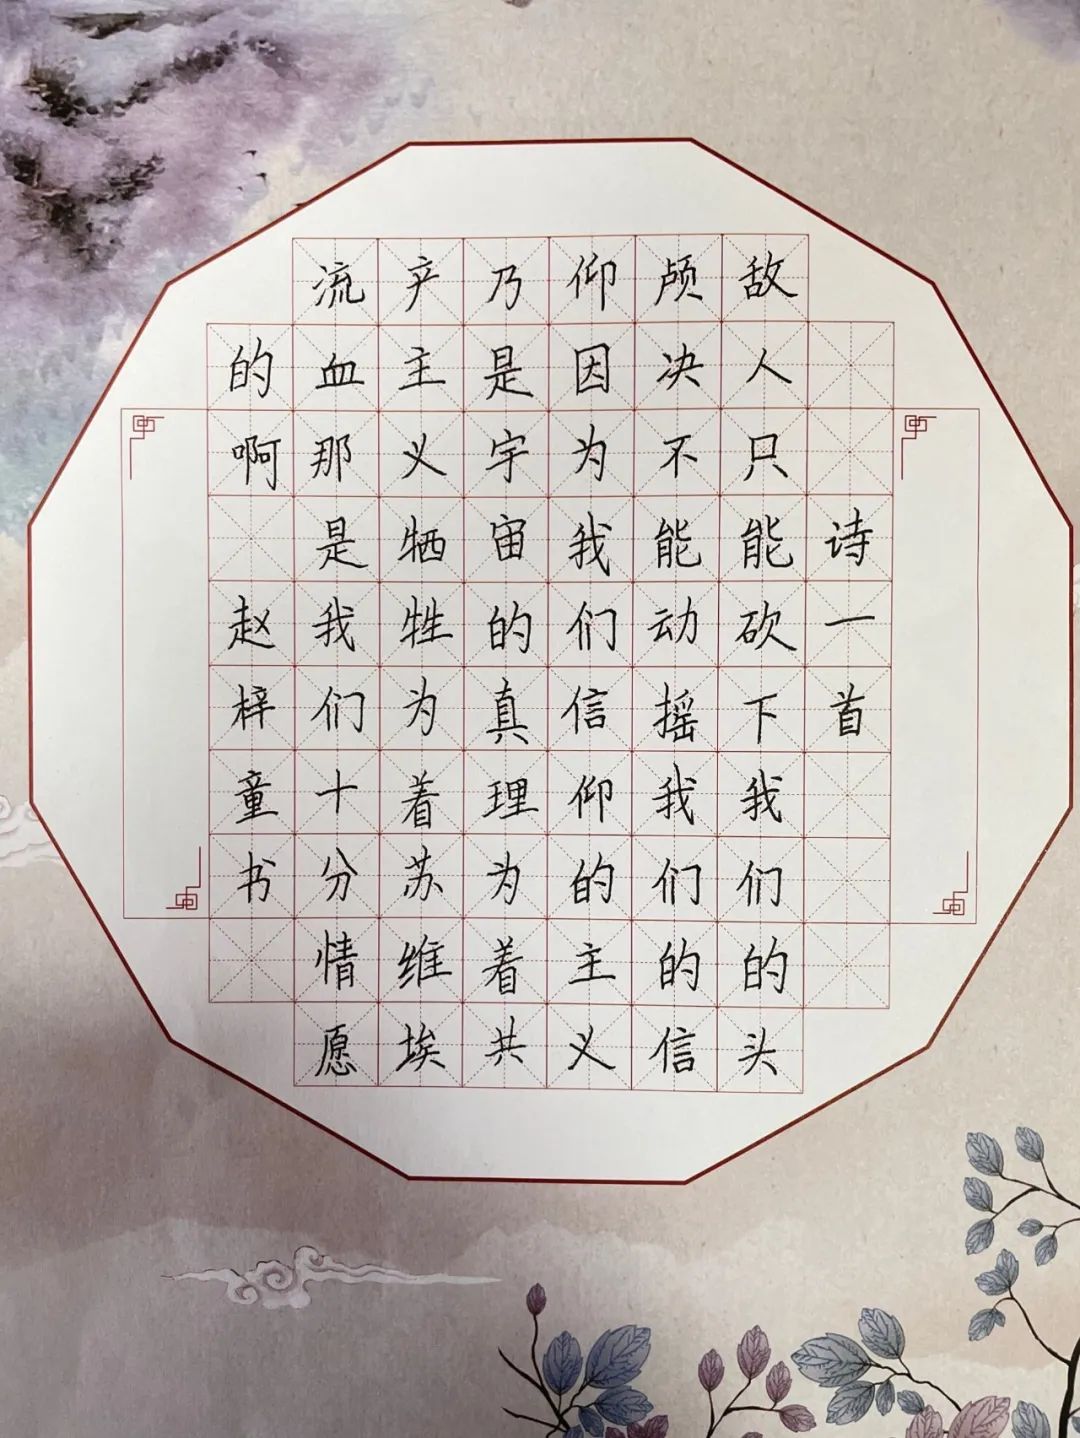 诗一首
敌人只能砍下我们的头
颅决不能动摇我们的信
仰因为我们信仰的主义
乃是宇宙的真理为着共
产主义牺牲为着苏维埃
流血那是我们十分情愿
的啊 赵梓童书